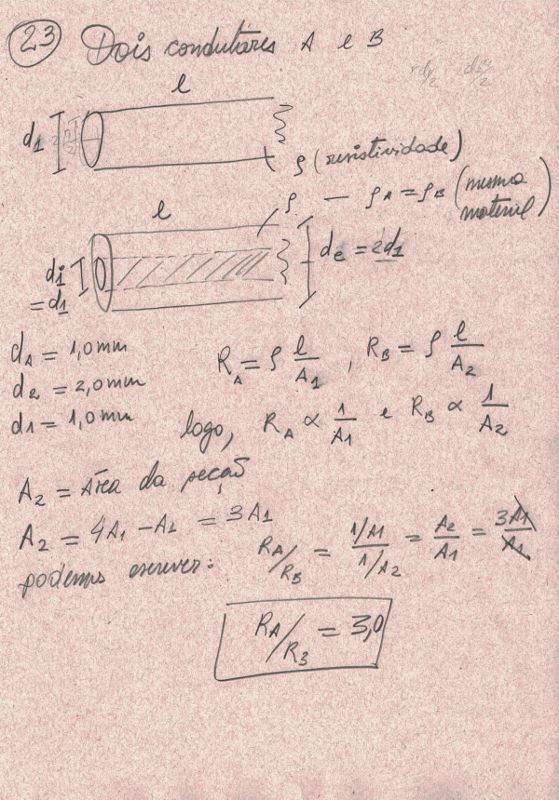 23 Dois condutores A e B
l
d1
ρ (resistividade)
l
ρ — ρA = ρB (mesmo material)
di = d1
de = 2d1
dA = 1,0mm
de = 2,0mm
d1 = 1,0mm
RA = ρ l/A1 , RB = ρ l/A2
logo, RA ∝ 1/A1 e RB ∝ 1/A2
A2 = Área da secção
A2 = 4A1 - A1 = 3A1
podemos escrever: RA/RB = 1/A1 / 1/A2 = A2/A1 = 3A1/A1
RA/RB = 3,0